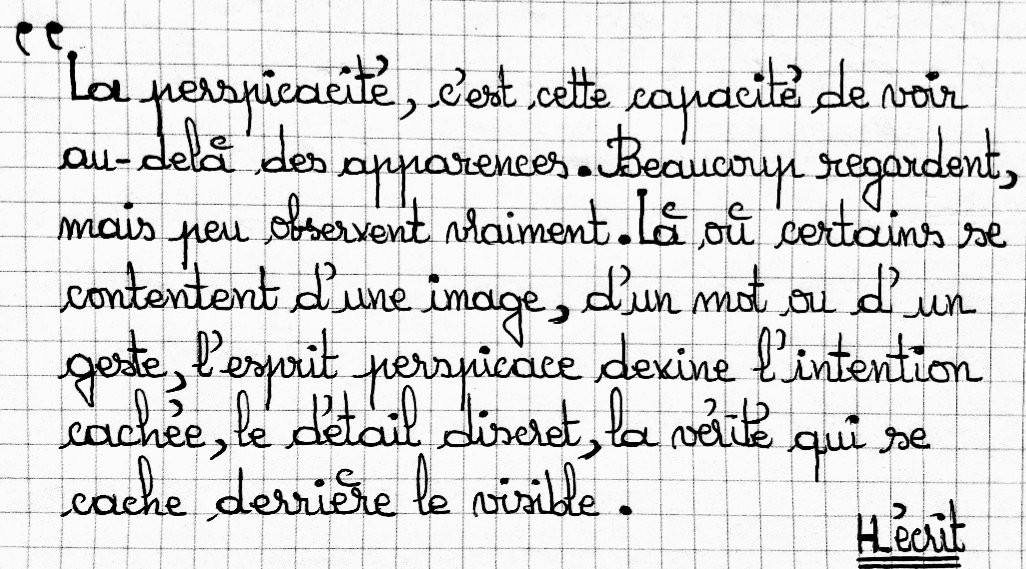 “La perspicacité, c'est cette capacité de voir
au-delà des apparences. Beaucoup regardent,
mais peu observent vraiment. Là où certains se
contentent d'une image, d'un mot ou d'un
geste, l'esprit perspicace devine l'intention
cachée, le détail discret, la vérité qui se
cache derrière le visible.
H_écrit